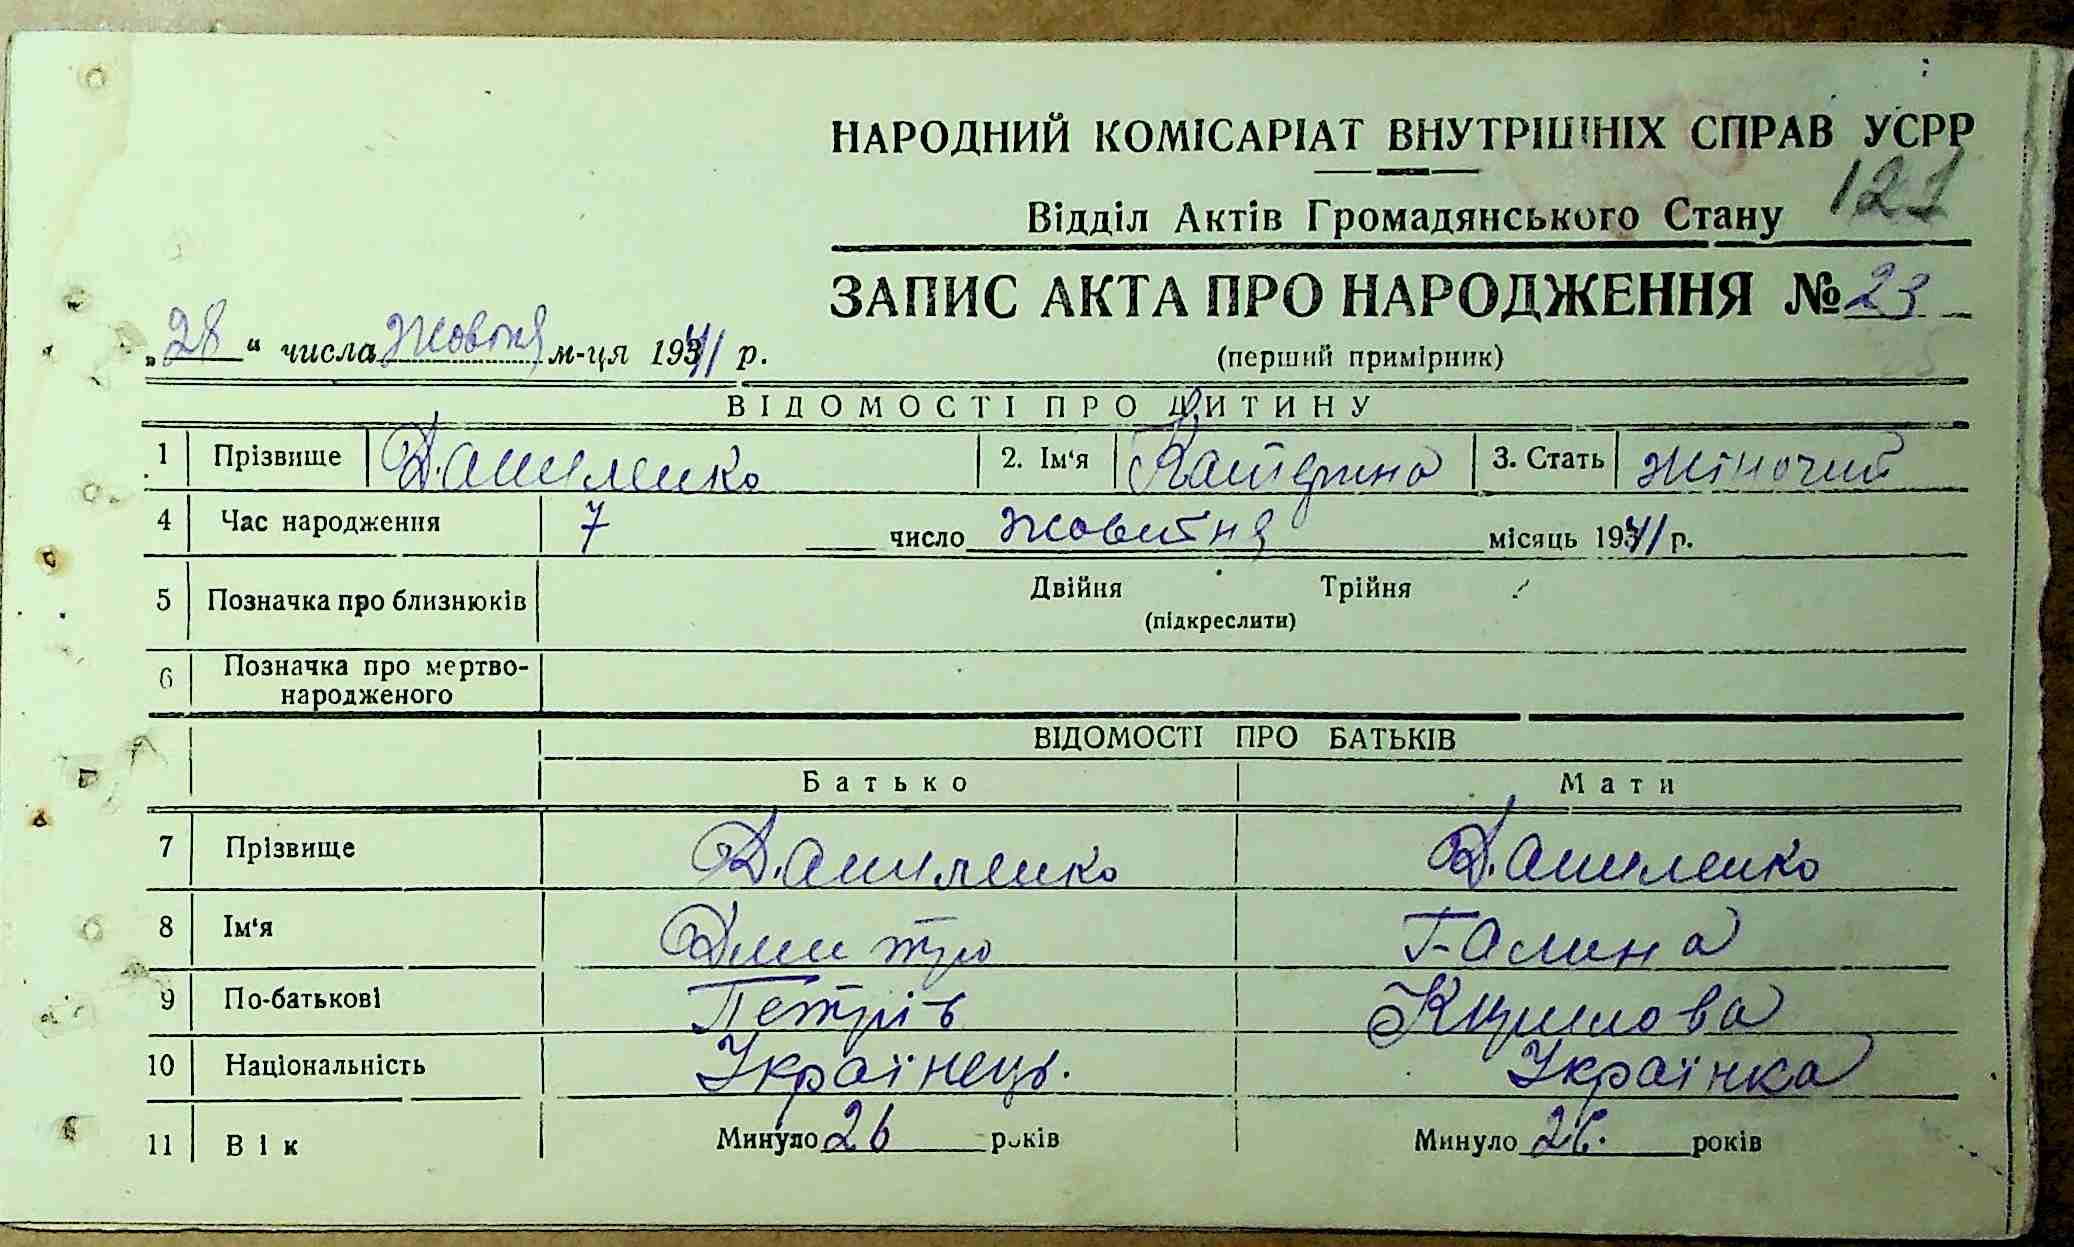 НАРОДНИЙ КОМІСАРІАТ ВНУТРІШНІХ СПРАВ УСРР
121
Відділ Актів Громадянського Стану
ЗАПИС АКТА ПРО НАРОДЖЕННЯ № 23
„28“ числа Жовтня м-ця 1941 р.
(перший примірник)
ВІДОМОСТІ ПРО ДИТИНУ
1 Прізвище Даниленко 2. Ім‘я Катерина 3. Стать жіночий
4 Час народження 7 число жовтня місяць 1941 р.
5 Позначка про близнюків Двійня Трійня
(підкреслити)
6 Позначка про мертво-
народженого
ВІДОМОСТІ ПРО БАТЬКІВ
Батько Мати
7 Прізвище Даниленко Даниленко
8 Ім‘я Дмитро Галина
9 По-батькові Петрів
10 Національність Українець. Українка
11 Вік Минуло 26 років Минуло 26. років